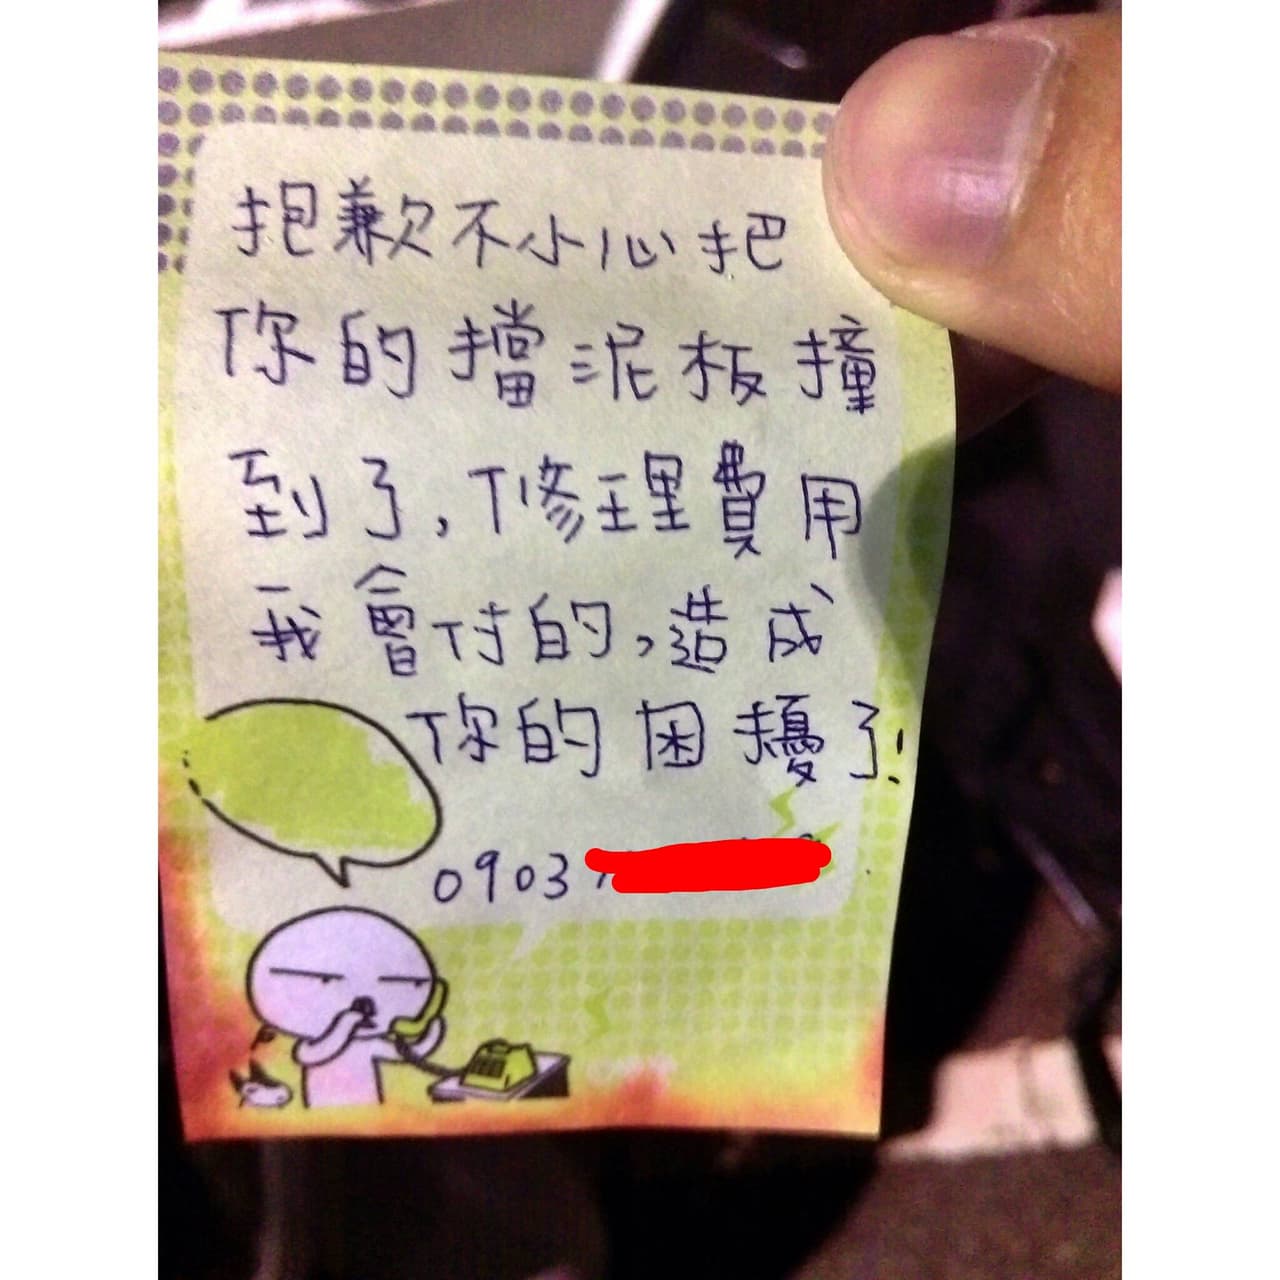 抱歉不小心把
你的擋泥板撞
到了,修理費用
我會付的,造成
你的困擾了!
0903